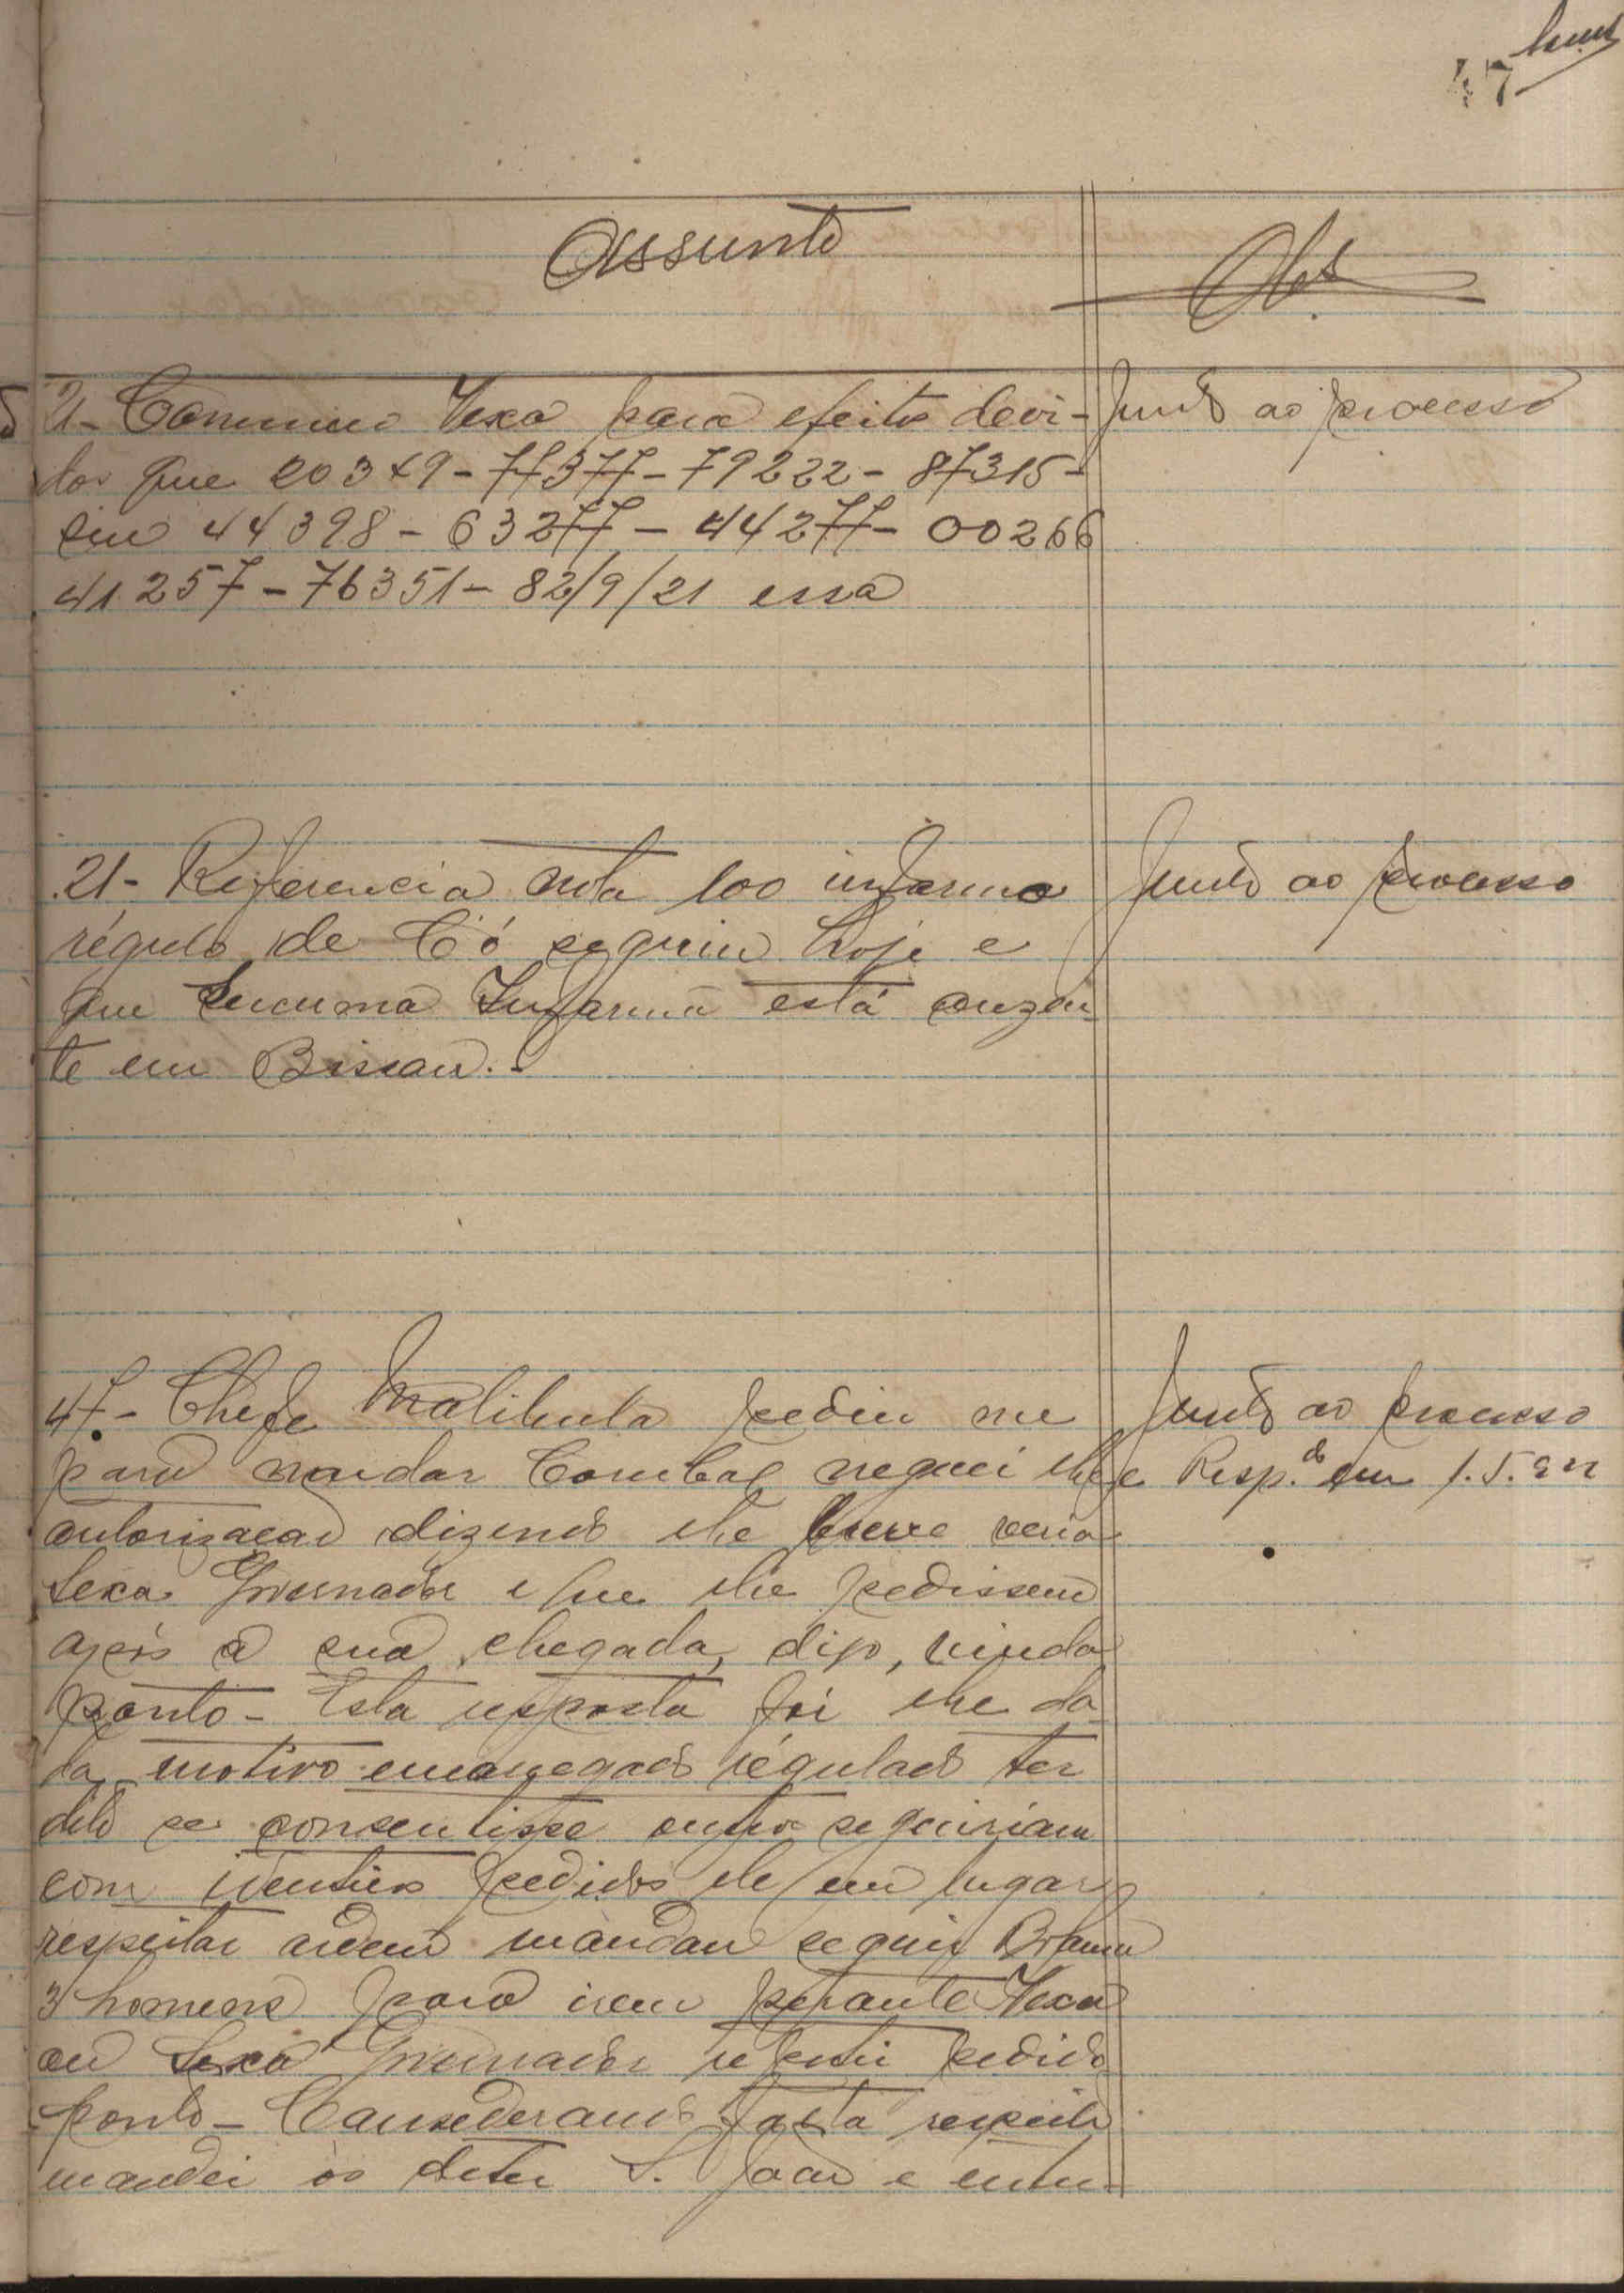 47
Assunto
Obs.
21- Comunico Vexa para efeitos devi-
dos que 20349-77377-79222-87315-
em 44398-63277-44277-00266
41257-76351-82/9/21 essa
Junto ao processo
21- Referencia nota 100 informo
régulo de Có seguiu hoje e
que está auzen-
te em Bissau.-
Junto ao processo
47- Chefe pediu me
para mandar neguei lhe
autorização dizendo lhe breve veria
Sexa Governador e que lhe pedissem
após a sua chegada, digo, vinda
ponto- Esta resposta foi lhe da-
da motivo encarregado régulado ter
dito se consentisse outros seguiriam
com identicos pedidos ele em lugar
respeitar ordem mandou seguir Bolama
3 homens para irem perante Vexa
ou Sexa Governador pedido
ponto- Considerando falta respeito
mandei os deter S. João e
Junto ao processo
e Resp.do em 1.5.922